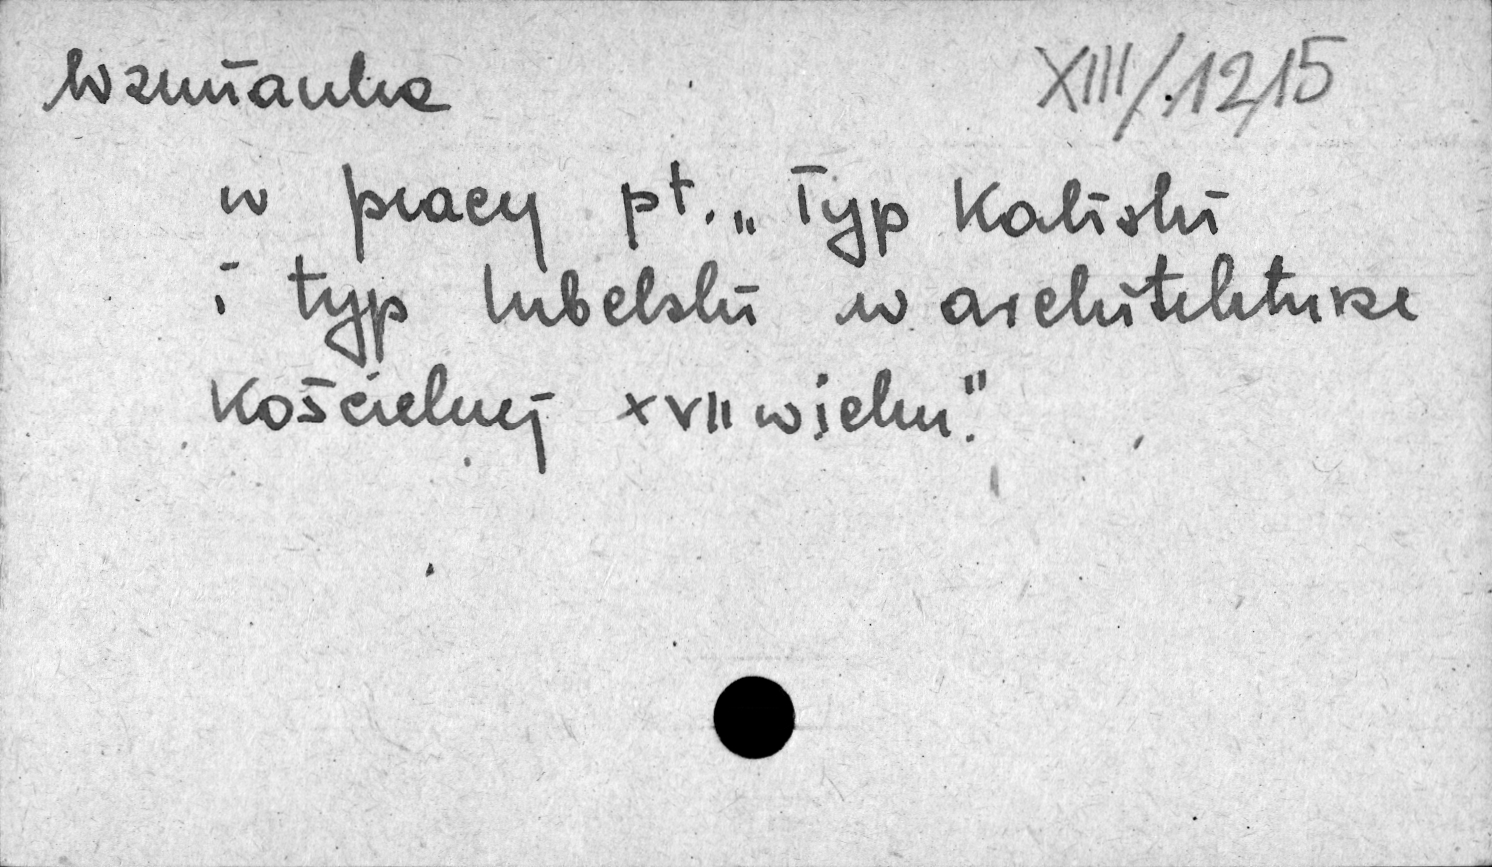 Wzmianka XIII/1215
w pracy pt. „Typ Kaliski
i typ lubelski w architekturze
Kościelnej XVII wieku".